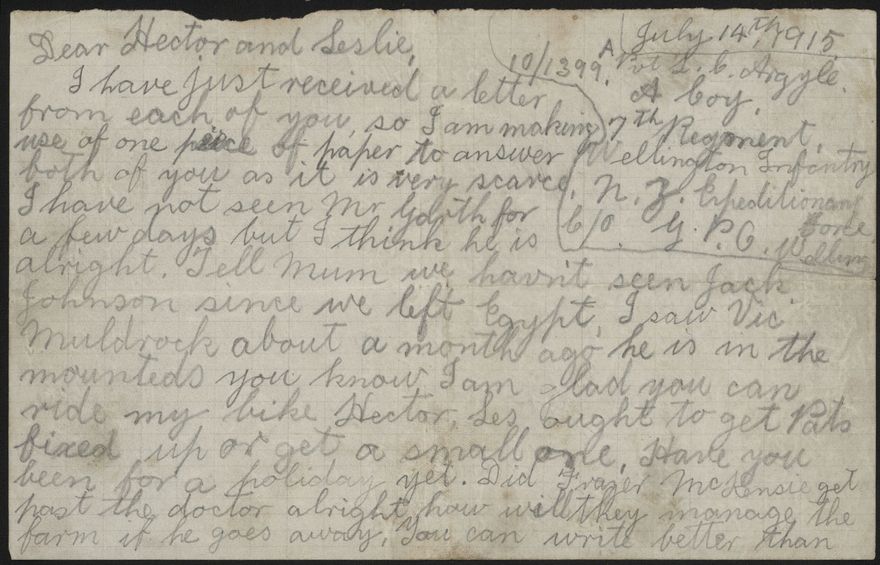 July 14th, 1915
10/1399. Pvt L. C. Argyle.
A Coy,
7th Regiment,
Wellington Infantry
N. Z. Expeditionary
Force,
C/o. G. P. O. Welling
Dear Hector and Leslie,
I have just received a letter
from each of you, so I am making
use of one piece of paper to answer
both of you as it is very scarce.
I have not seen Mr Garth for
a few days but I think he is
alright. Tell Mum we havn't seen Jack
Johnson since we left Egypt, I saw Vic
Muldrock about a month ago he is in the
mounteds you know, I am glad you can
ride my bike Hector, Les ought to get Pats
fixed up or get a small one, Have you
been for a holiday yet. Did Frazer McKensie get
past the doctor alright, how will they manage the
farm if he goes away, You can write better than